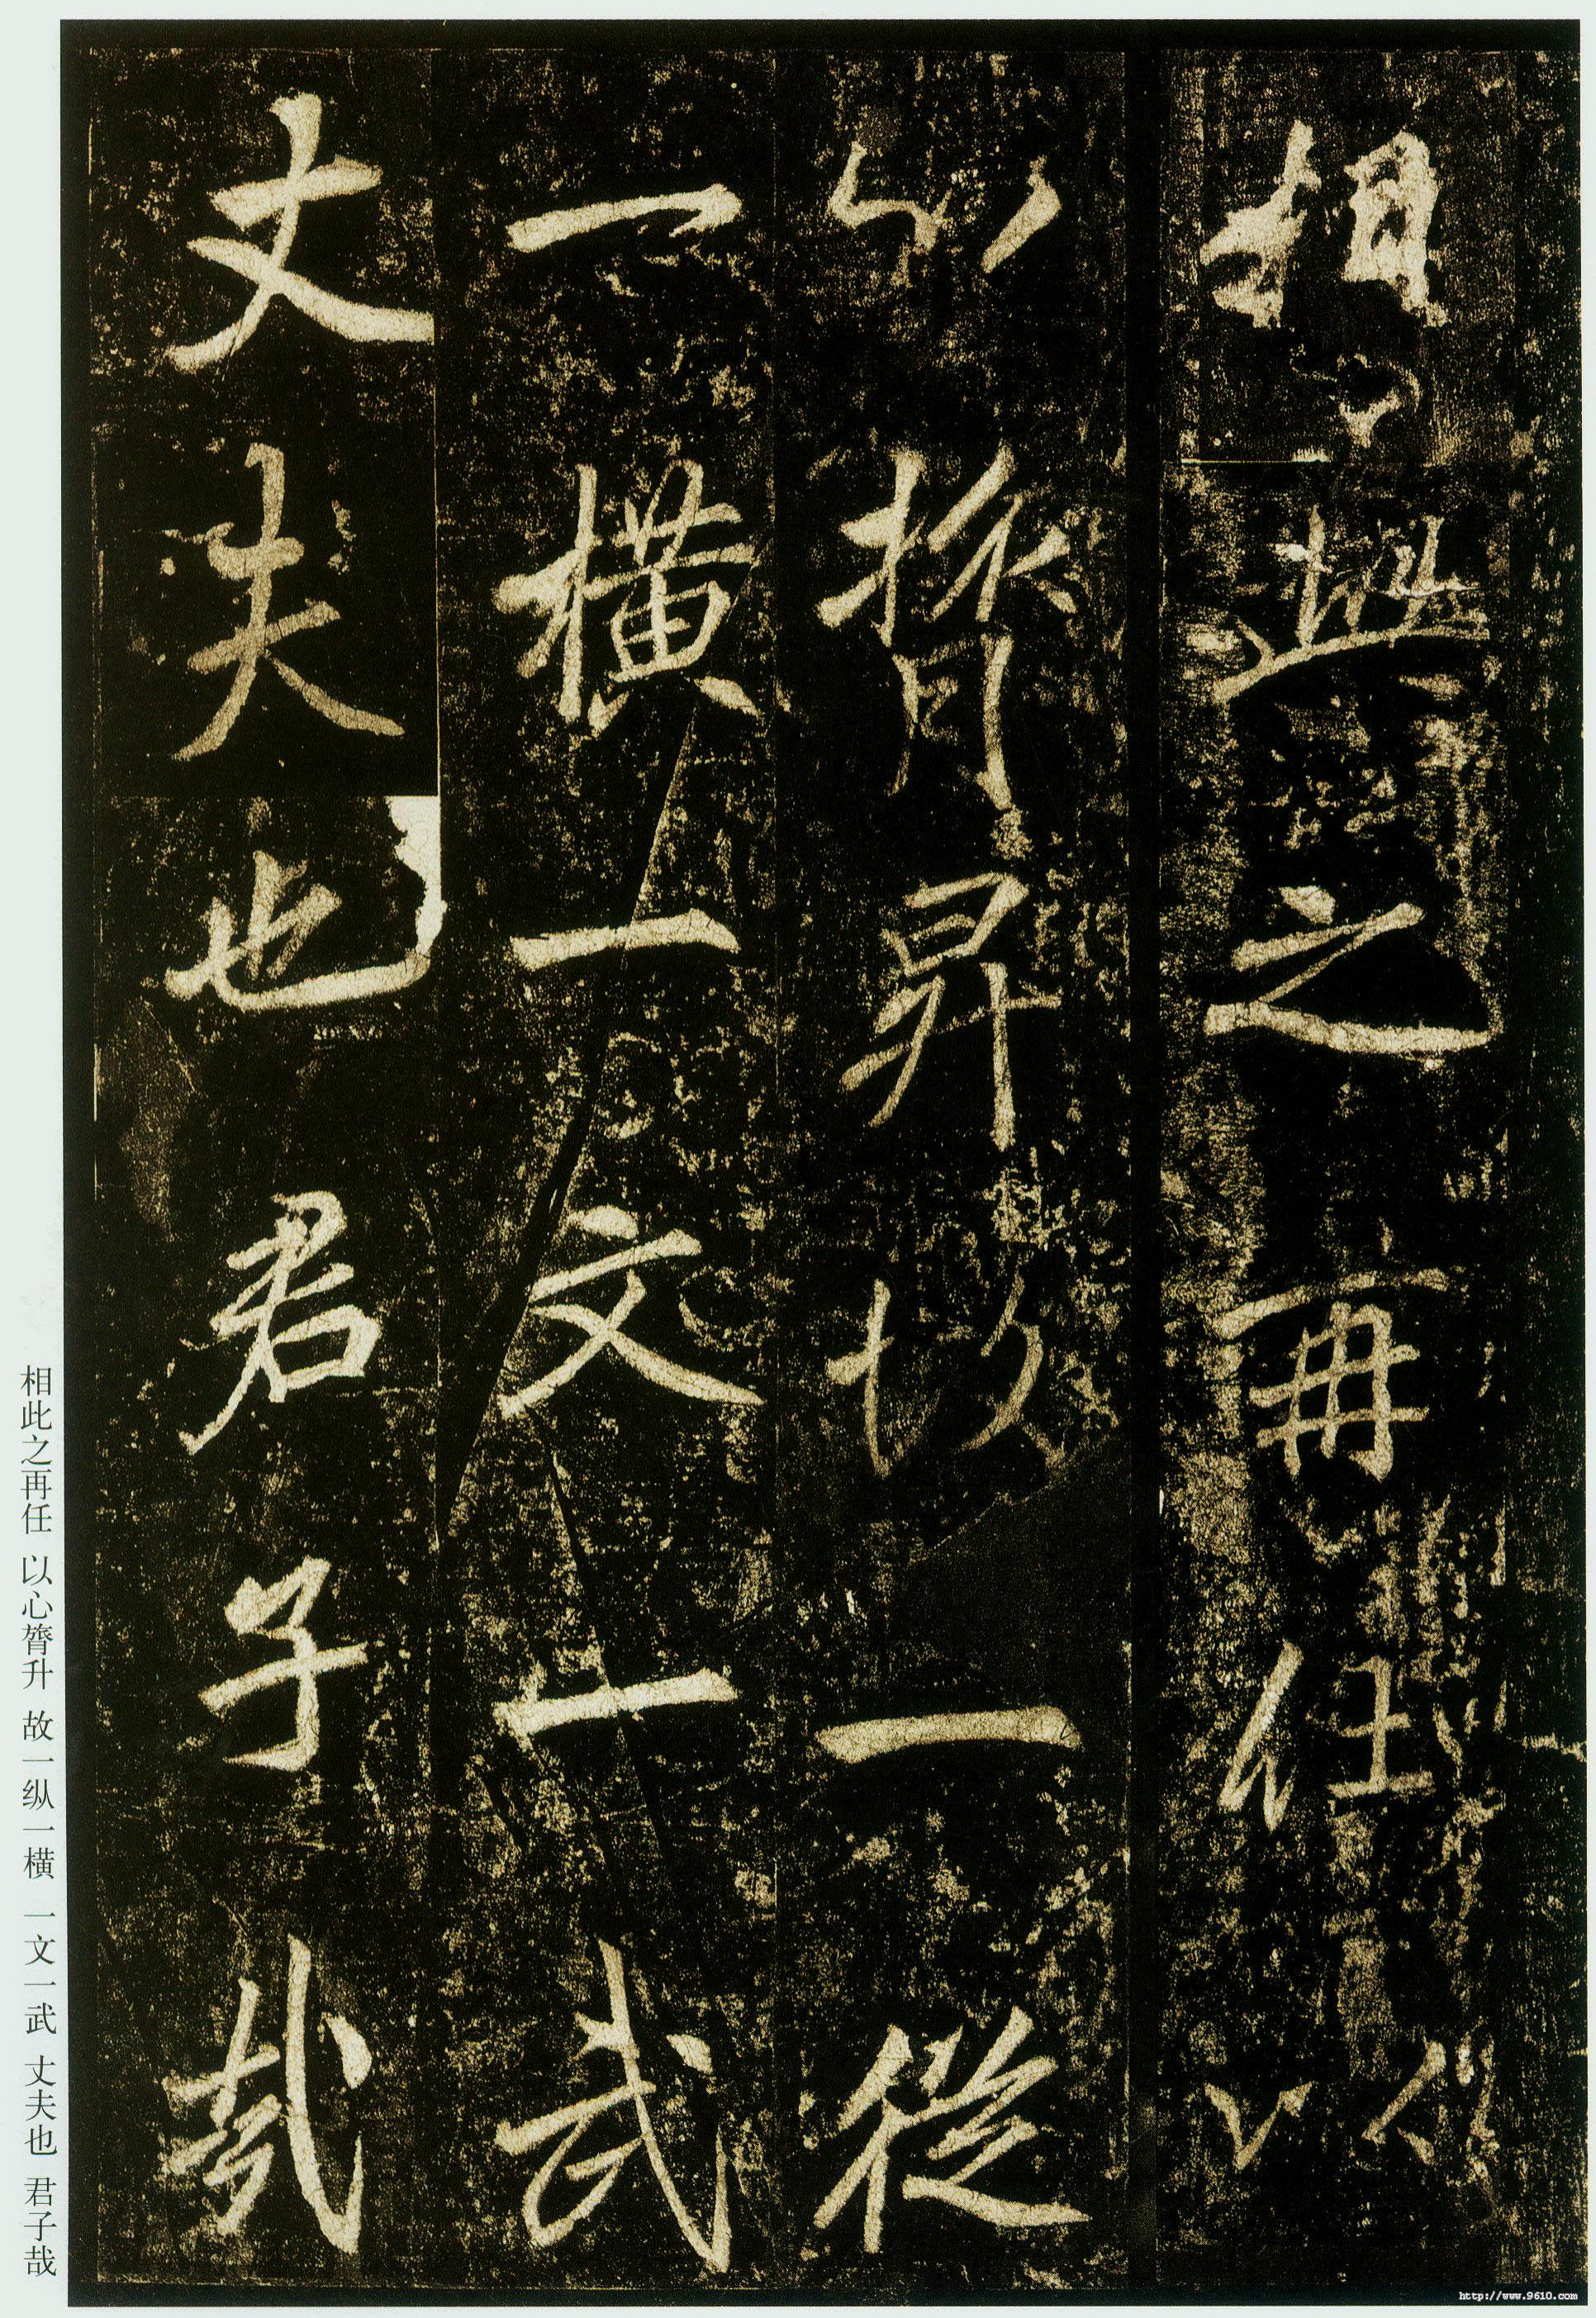 相此之再任以
心膂昇故一從
一橫一文一武
丈夫也君子哉
相此之再任 以心膂升 故一纵一横 一文一武 丈夫也 君子哉
http://www.9610.com